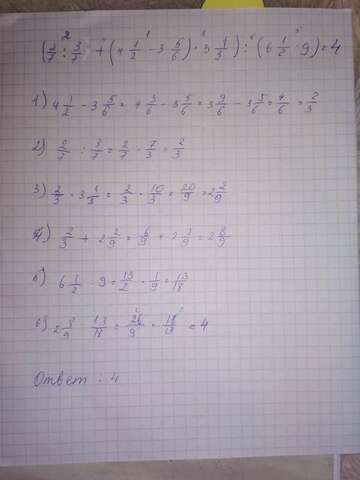 (2/7 : 3/7 + (4 1/2 - 3 5/6) · 3 1/3) : (6 1/2 : 9) = 4
1) 4 1/2 - 3 5/6 = 4 3/6 - 3 5/6 = 3 9/6 - 3 5/6 = 4/6 = 2/3
2) 2/7 : 3/7 = 2/7 · 7/3 = 2/3
3) 2/3 · 3 1/3 = 2/3 · 10/3 = 20/9 = 2 2/9
4) 2/3 + 2 2/9 = 6/9 + 2 2/9 = 2 8/9
5) 6 1/2 : 9 = 13/2 · 1/9 = 13/18
6) 2 8/9 : 13/18 = 26/9 · 18/13 = 4
Ответ : 4